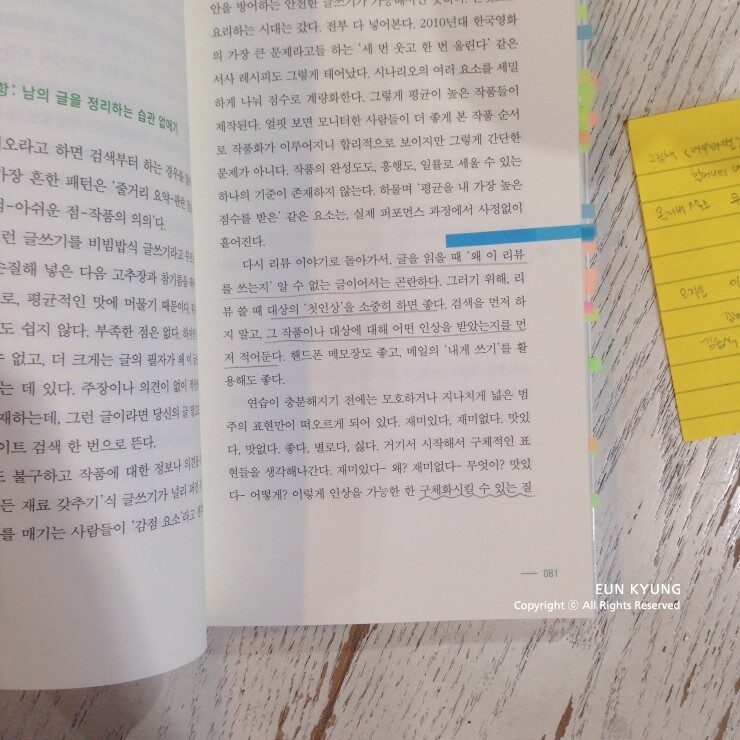 항: 남의 글을 정리하는 습관 없애기
오라고 하면 검색부터 하는 경우를
가장 흔한 패턴은 '줄거리 요약-관련
점-아쉬운 점-작품의 의의'다.
런 글쓰기를 비빔밥식 글쓰기라고
는질해 넣은 다음 고추장과 참기름을
로, 평균적인 맛에 머물기 때문이다.
도 쉽지 않다. 부족한 점은 없다.
수 없고, 더 크게는 글의 필자가 왜 이
는 데 있다. 주장이나 의견이 없이
재하는데, 그런 글이라면 당신의 글 말고
이트 검색 한 번으로 뜬다.
도 불구하고 작품에 대한 정보나 의견을
든 재료 갖추기'식 글쓰기가 널리 퍼진
를 매기는 사람들이 '감점 요소'라고
안을 방어하는 안전한 글쓰기가
요리하는 시대는 갔다. 전부 다 넣어본다. 2010년대 한국영화
의 가장 큰 문제라고들 하는 '세 번 웃고 한 번 울린다' 같은
서사 레시피도 그렇게 태어났다. 시나리오의 여러 요소를 세밀
하게 나눠 점수로 계량화한다. 그렇게 평균이 높은 작품들이
제작된다. 얼핏 보면 모니터한 사람들이 더 좋게 본 작품 순서
로 작품화가 이루어지니 합리적으로 보이지만 그렇게 간단한
문제가 아니다. 작품의 완성도도, 흥행도, 일률로 세울 수 있는
하나의 기준이 존재하지 않는다. 하물며 '평균을 내 가장 높은
점수를 받은' 같은 요소는, 실제 퍼포먼스 과정에서 사정없이
흩어진다.
다시 리뷰 이야기로 돌아가서, 글을 읽을 때 '왜 이 리뷰
를 쓰는지' 알 수 없는 글이어서는 곤란하다. 그러기 위해, 리
뷰 쓸 때 대상의 '첫인상'을 소중히 하면 좋다. 검색을 먼저 하
지 말고, 그 작품이나 대상에 대해 어떤 인상을 받았는지를 먼
저 적어둔다. 핸드폰 메모장도 좋고, 메일의 '내게 쓰기'를 활
용해도 좋다.
연습이 충분해지기 전에는 모호하거나 지나치게 넓은 범
주의 표현만이 떠오르게 되어 있다. 재미있다, 재미없다. 맛있
다, 맛없다. 좋다, 별로다, 싫다. 거기서 시작해서 구체적인 표
현들을 생각해나간다. 재미있다- 왜? 재미없다- 무엇이? 맛있
다- 어떻게? 이렇게 인상을 가능한 한 구체화시킬 수 있는 질
081
EUN KYUNG
Copyright ⓒ All Rights Reserved